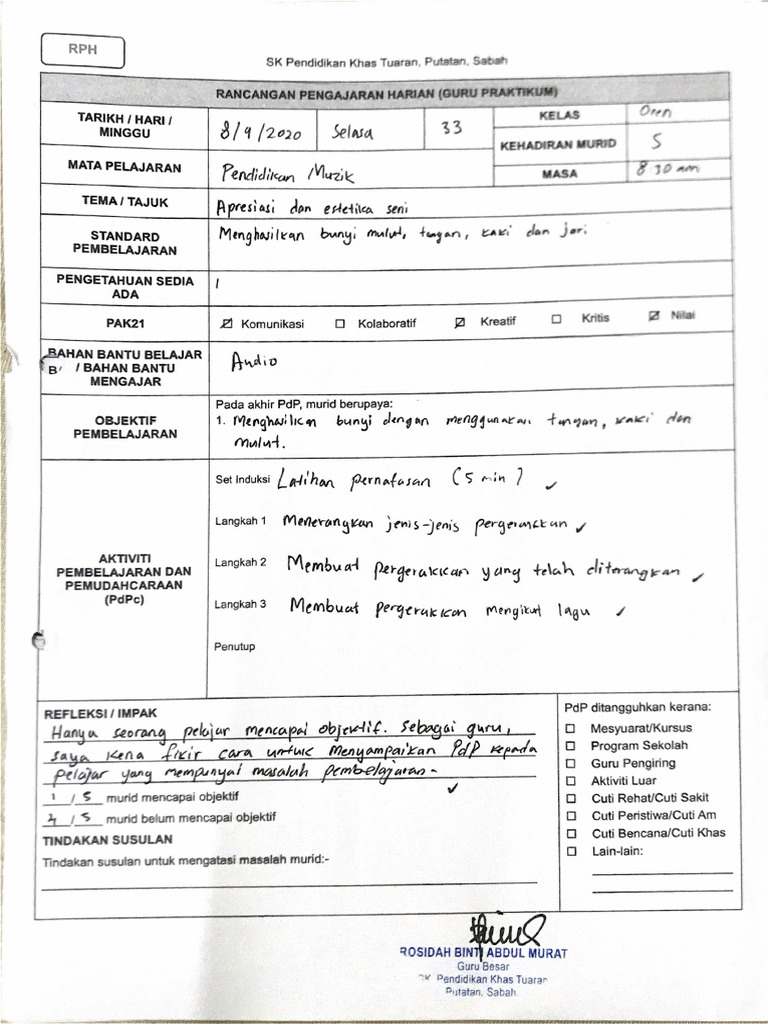 RPH
SK Pendidikan Khas Tuaran, Putatan, Sabah
RANCANGAN PENGAJARAN HARIAN (GURU PRAKTIKUM)
TARIKH / HARI / MINGGU
8/9/2020
Selasa
33
KELAS
Oren
KEHADIRAN MURID
5
MATA PELAJARAN
Pendidikan Muzik
MASA
8:30 am
TEMA / TAJUK
Apresiasi dan estetika seni
STANDARD PEMBELAJARAN
Menghasilkan bunyi mulut, tangan, kaki dan jari
PENGETAHUAN SEDIA ADA
1
PAK21
☑ Komunikasi ☐ Kolaboratif ☑ Kreatif ☐ Kritis ☑ Nilai
BAHAN BANTU BELAJAR
/ BAHAN BANTU
MENGAJAR
Audio
OBJEKTIF PEMBELAJARAN
Pada akhir PdP, murid berupaya:
1. Menghasilkan bunyi dengan menggunakan tangan, kaki dan
mulut.
AKTIVITI
PEMBELAJARAN DAN
PEMUDAHCARAAN
(PdPc)
Set Induksi Latihan pernafasan (5 min) ✓
Langkah 1 Menerangkan jenis-jenis pergerakkan ✓
Langkah 2 Membuat pergerakkan yang telah diterangkan ✓
Langkah 3 Membuat pergerakkan mengikut lagu ✓
Penutup
REFLEKSI / IMPAK
Hanya seorang pelajar mencapai objektif. Sebagai guru,
saya kena fikir cara untuk menyampaikan PdP kepada
pelajar yang mempunyai masalah pembelajaran- ✓
1 / 5 murid mencapai objektif
4 / 5 murid belum mencapai objektif
TINDAKAN SUSULAN
Tindakan susulan untuk mengatasi masalah murid:-
PdP ditangguhkan kerana:
☐ Mesyuarat/Kursus
☐ Program Sekolah
☐ Guru Pengiring
☐ Aktiviti Luar
☐ Cuti Rehat/Cuti Sakit
☐ Cuti Peristiwa/Cuti Am
☐ Cuti Bencana/Cuti Khas
☐ Lain-lain:
ROSIDAH BINTI ABDUL MURAT
Guru Besar
SK. Pendidikan Khas Tuaran
Putatan, Sabah.